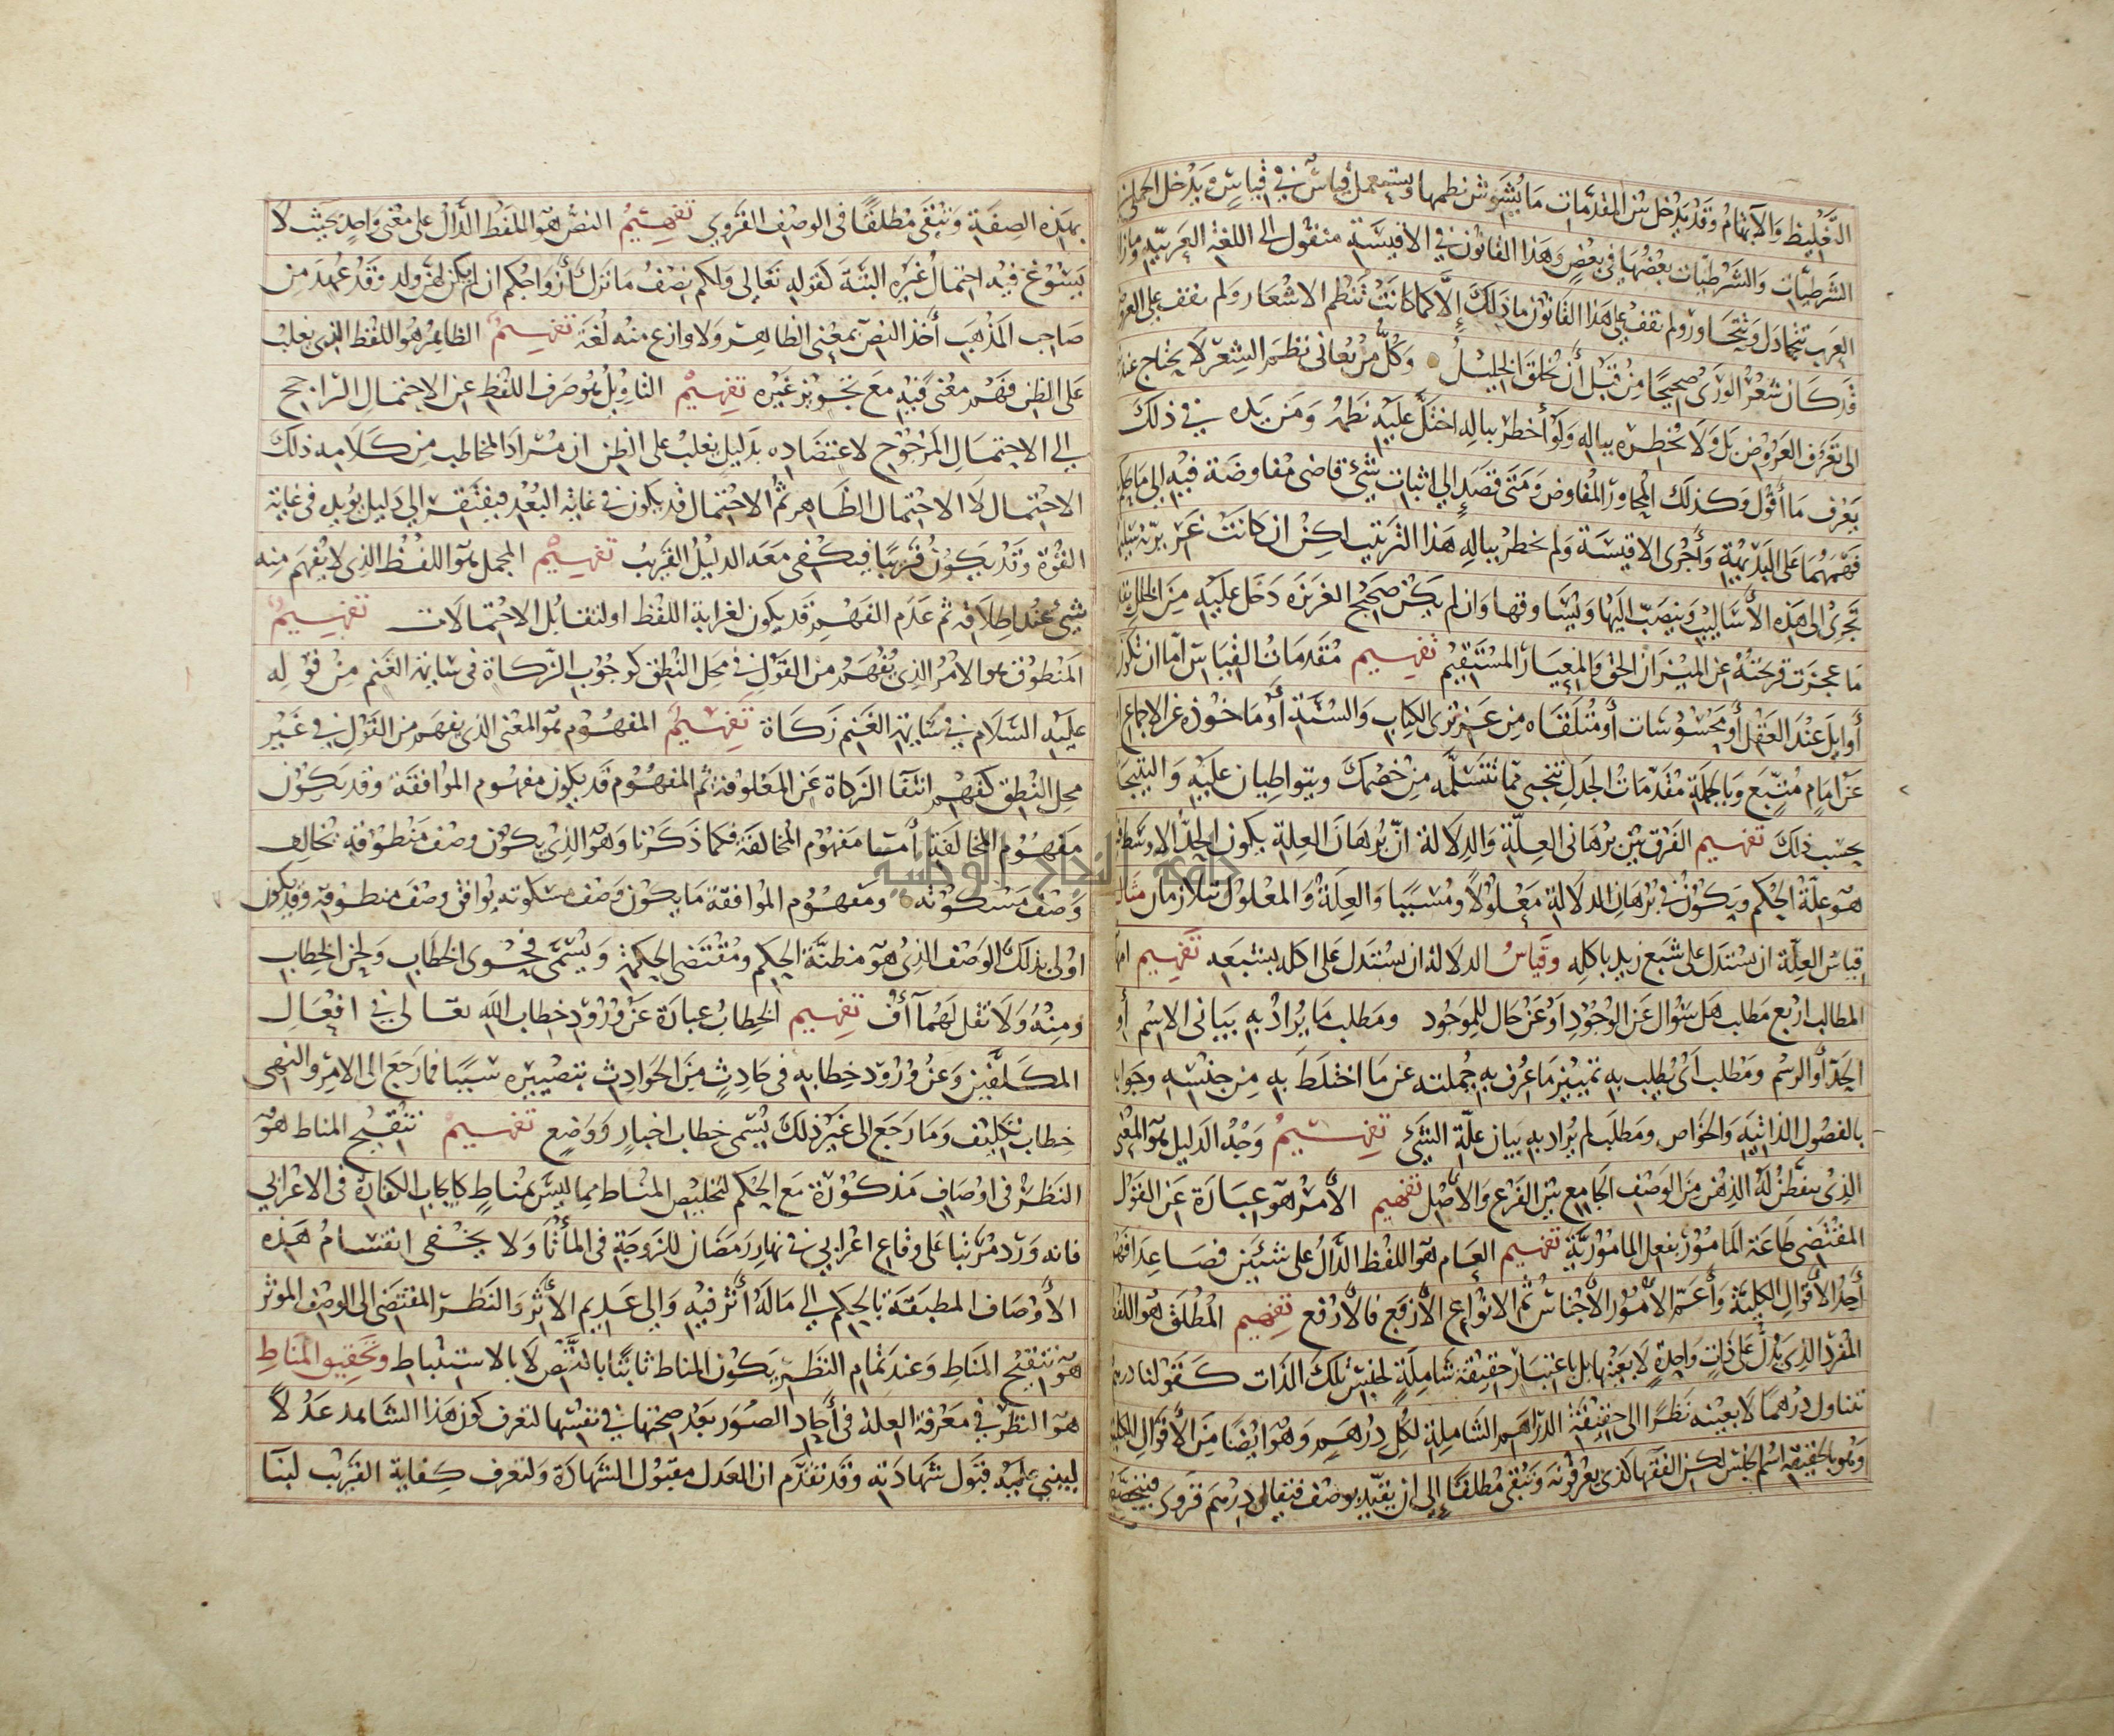 التغليظ والابهام وقد يدخل بين المقدمات ما يشوش نظمها ويستعمل قياس في قياس ويدخل الحملي
الشرطيات والشرطيات بعضها في بعض وهذا القانون في الاقيسة منقول الى اللغة العربية وما
العرب تتجادل وتتحاور ولم تقف على هذا القانون ما ذلك إلا كما كانت تنظم الاشعار ولم تقف على
قد كان شعر الورى صحيحا من قبل أن يخلق الخليل وكل من يعاني نظم الشعر لا يحتاج
الى تعرف العروض بل ولا يخطره بباله ولو أخطر بباله اختل عليه نظمه ومن يده في ذلك
يعرف ما أقول وكذلك المحاور المفاوض ومتى قصد إلى اثبات شيء قاضى مفاوضة فيه الى ما
فهمهما على البديهة وأجرى الاقيسة ولم يخطر بباله هذا الترتيب لكن ان كانت
تجري الى هذه الأساليب وينصب اليها ويتساوقها وان لم يكن صحيح الغريزة دخل عليه من الخلل
ما عجزت قريحته عن الميزان الحق والمعيار المستقيم تفهيم مقدمات القياس اما ان تكون
أوايل عند العقل أو محسوسات أو متلقاه من عزيزي الكتاب والسنة أو ماخوذه عن الاجماع
عن امام متبع وبالجملة مقدمات الجدل تنتخبى مما تتسلمه من خصمك ويتواطيان عليه والنتيجة
بحسب ذلك تفهيم الفرق بين برهاني العلة والدلالة انّ برهان العلة يكون الحد الاوسط
هو علة الحكم ويكون في برهان الدلالة معلولاً ومسببا والعلة والمعلول متلازمان مثال
قياس العلة ان يستدل على شبع زيد باكله وقياس الدلالة ان يستدل على اكله بشبعه تفهيم
المطالب اربع مطلب هل سؤال عن الوجود او عن حال للموجود ومطلب ما يراد به بياني الاسم أو
الحد أو الرسم ومطلب أي يطلب به تمييز ما عرف به جملته عن ما اختلط به من جنسه وجوابه
بالفصول الذاتية والخواص ومطلب لم يراد به بيان علة الشيء تفهيم وجه الدليل هو المعنى
الذي يتفطن له الذهن من الوصف الجامع بين الفرع والأصل تفهيم الأمر هو عبارة عن القول
المقتضي طاعة المامور بفعل المامور به تفهيم العام هو اللفظ الدّالّ على شيئين فصاعدا
أحد الأقوال الكلية وأعم الأمور الأجناس ثم الانواع الأرفع فالأرفع تفهيم المطلق هو اللفظ
المفرد الذي يدل على ذات واحدة لا بعينها بل باعتبار حقيقة شاملة لجنس تلك الذات كقولنا درهم
تتناول درهما لا بعينه نظرا الى حقيقة الدراهم الشاملة لكل درهم وهو ايضا من الأقوال الكلية
وهو بالحقيقة اسم الجنس لكن الفقها كذى يعرفونه وتبقى مطلقا إلى ان يقيد بوصف فيقال درهم قروي
بهذه الصفة وتبقى مطلقا في الوصف القروي تفهيم النص هو اللفظ الدّالّ على معنى واحد بحيث لا
يسوغ فيه احتمال غيره البتة كقوله تعالى ولكم نصف ما ترك أزواجكم ان لم يكن لهن ولد وقد عهد من
صاحب المذهب أخذ النص بمعنى الظاهر ولا وازع منه لغة تفهيم الظاهر هو اللفظ الذي يغلب
على الظن فهم معنى فيه مع تجويز غيره تفهيم التاويل هو صرف اللفظ عن الاحتمال الراجح
الي الاحتمال المرجوح لاعتضاده بدليل يغلب على الظن ان مراد المخاطب من كلامه ذلك
الاحتمال لا الاحتمال الظاهر ثم الاحتمال قد يكون في غاية البعد فيفتقر الي دليل يؤيده في غاية
القوة وقد يكون قريبا فيكفى معه الدليل القريب تفهيم المجمل هو اللفظ الذي لا يفهم منه
شيئ عند اطلاقه ثم عدم الفهم قد يكون لغرابة اللفظ او لتقابل الاحتمالات تفهيم
المنطوق هو الامر الذي يفهم من القول في محل النطق كوجوب الزكاة في سائمة الغنم من قوله
عليه السلام في سائمة الغنم زكاة تفهيم المفهوم هو المعنى الذي يفهم من القول في غير
محل النطق كفهم انتفا الزكاة عن المعلوفة ثم المفهوم قد يكون مفهوم الموافقة وقد يكون
مفهوم المخالفة أما مفهوم المخالفة فكما ذكرنا وهو الذي يكون وصف منطوقه يخالف
وصف مسكوته ومفهوم الموافقة ما يكون وصف مسكوته يوافق وصف منطوقه وقد يكون
اولى بذلك الوصف الذي هو مظنة الحكم ومقتضى الحكمة ويسمى فحوى الخطاب ولحن الخطاب
ومنه ولا تقل لهما أف تفهيم الخطاب عبارة عن ورود خطاب الله تعالى في افعال
المكلفين وعن ورود خطابه في حادث من الحوادث بتصييره سببا فما رجع الى الامر والنهي
خطاب تكليف وما رجع الى غير ذلك يسمى خطاب اخبار ووضع تفهيم تنقيح المناط هو
النظر في اوصاف مذكورة مع الحكم لتخليص المناط مما ليس بمناط كايجاب الكفارة في الاعرابي
فانه ورد مرتبا على وقاع اعرابي في نهار رمضان للزوجة في المأتا ولا يخفى انقسام هذه
الأوصاف المطبقة بالحكم إلى ما له أثر فيه وإلى عديم الأثر والنظر المقتضى الى الوصف الموثر
هو تنقيح المناط وعند تمام النظر يكون المناط ثابتا بالنص لا بالاستنباط وتحقيق المناط
هو النظر في معرفة العلة في أحاد الصور بعد صحتها في نفسها لتعرف كون هذا الشاهد عدلا
ليبني عليه قبول شهادته وقد تقدم ان العدل مقبول الشهادة ولتعرف كفاية القريب لبنا
جامعة النجاح الوطنية